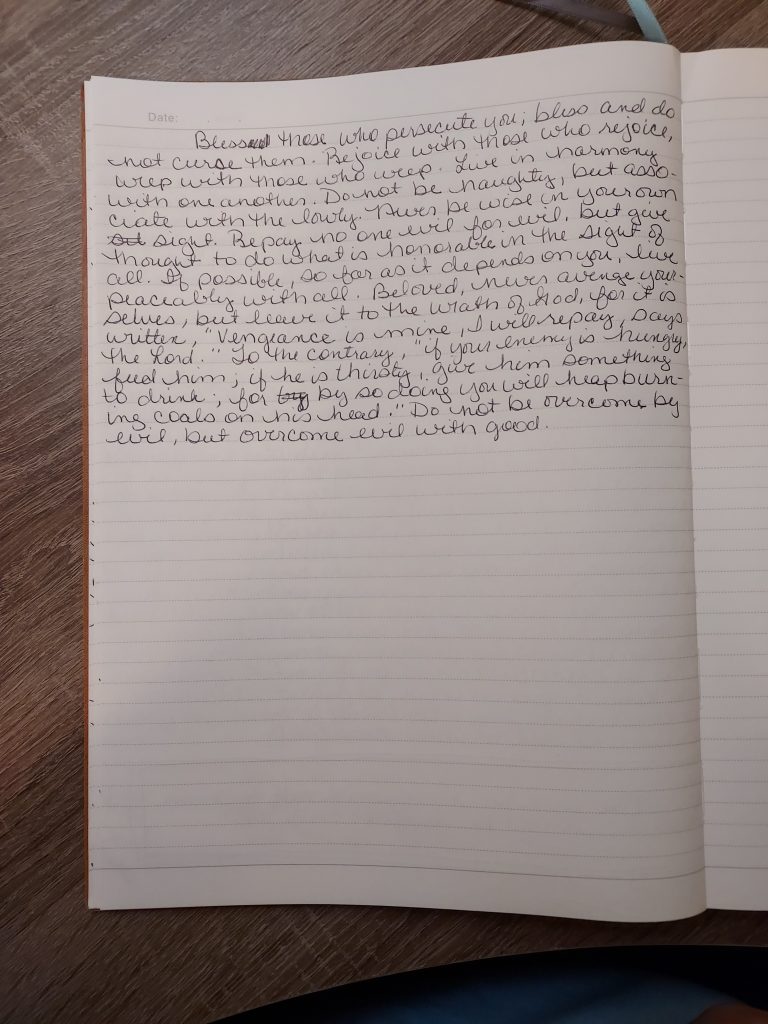 Date:
Bless those who persecute you; bless and do
not curse them. Rejoice with those who rejoice,
weep with those who weep. Live in harmony
with one another. Do not be haughty, but asso-
ciate with the lowly. Never be wise in your own
sight. Repay no one evil for evil, but give
thought to do what is honorable in the sight of
all. If possible, so far as it depends on you, live
peaceably with all. Beloved, never avenge your-
selves, but leave it to the wrath of God, for it is
written, "Vengeance is mine, I will repay, says
the Lord." To the contrary, "if your enemy is hungry,
feed him; if he is thirsty, give him something
to drink; for by so doing you will heap burn-
ing coals on his head." Do not be overcome by
evil, but overcome evil with good.